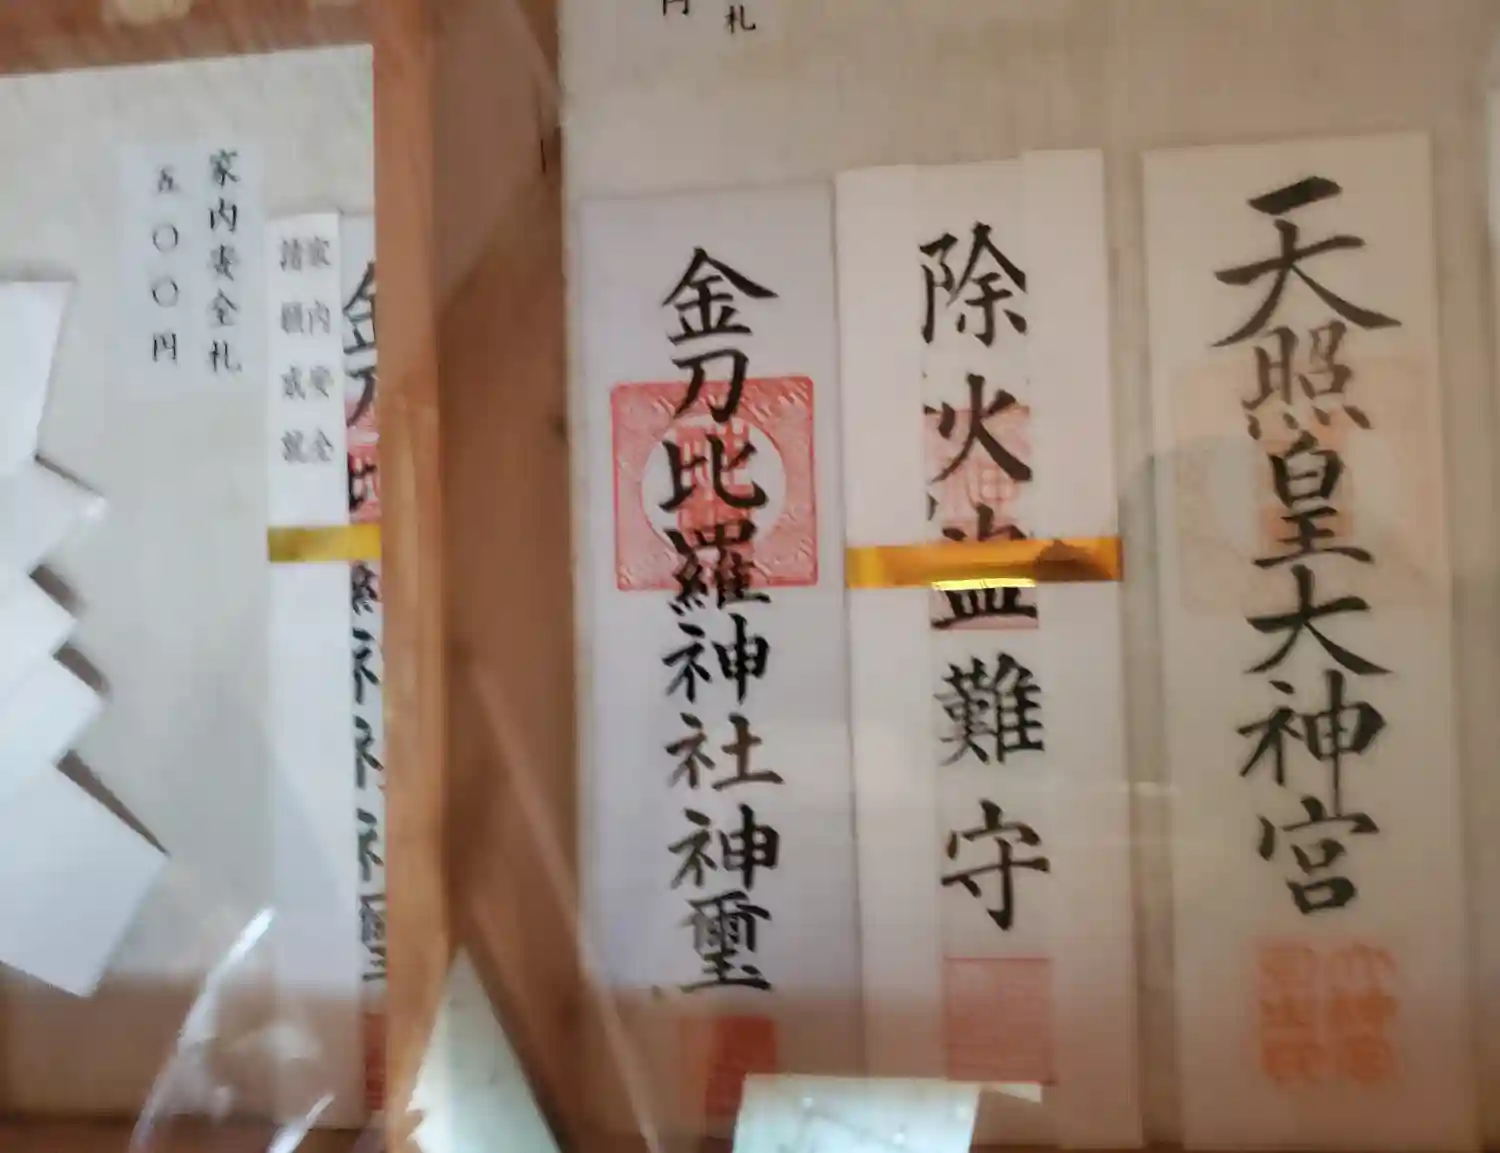 円
札
天照皇大神宮
除火盗難守
金刀比羅神社神璽
家内安全
諸願成就
家内安全札
五〇〇円